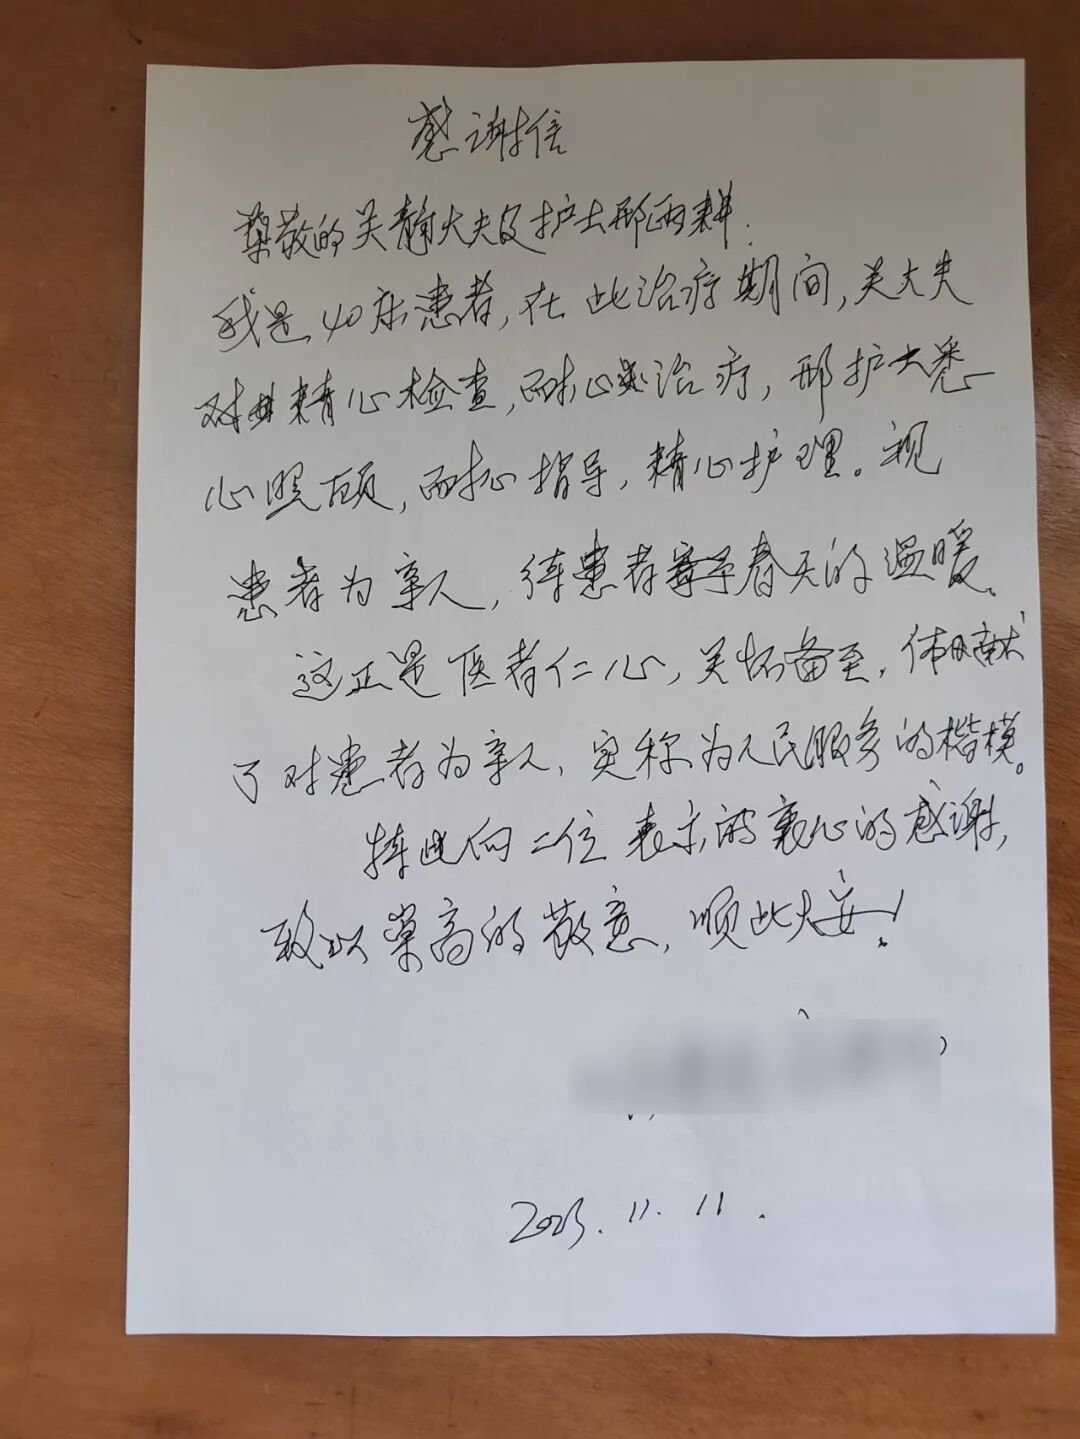 感谢信
尊敬的关静大夫及护士邢雨耕.
我是40床患者,在此治疗期间,关大夫
对 精心检查,耐心 治疗,邢护士悉
心照顾,耐心指导,精心护理。视
患者为亲人,待患者 春天的温暖.
这正是医者仁心,关怀备至,体现
了对患者为亲人,实称为人民服务的楷模。
特此向二位表示的衷心的感谢,
致以崇高的敬意,顺此大安!
2023.11.11.